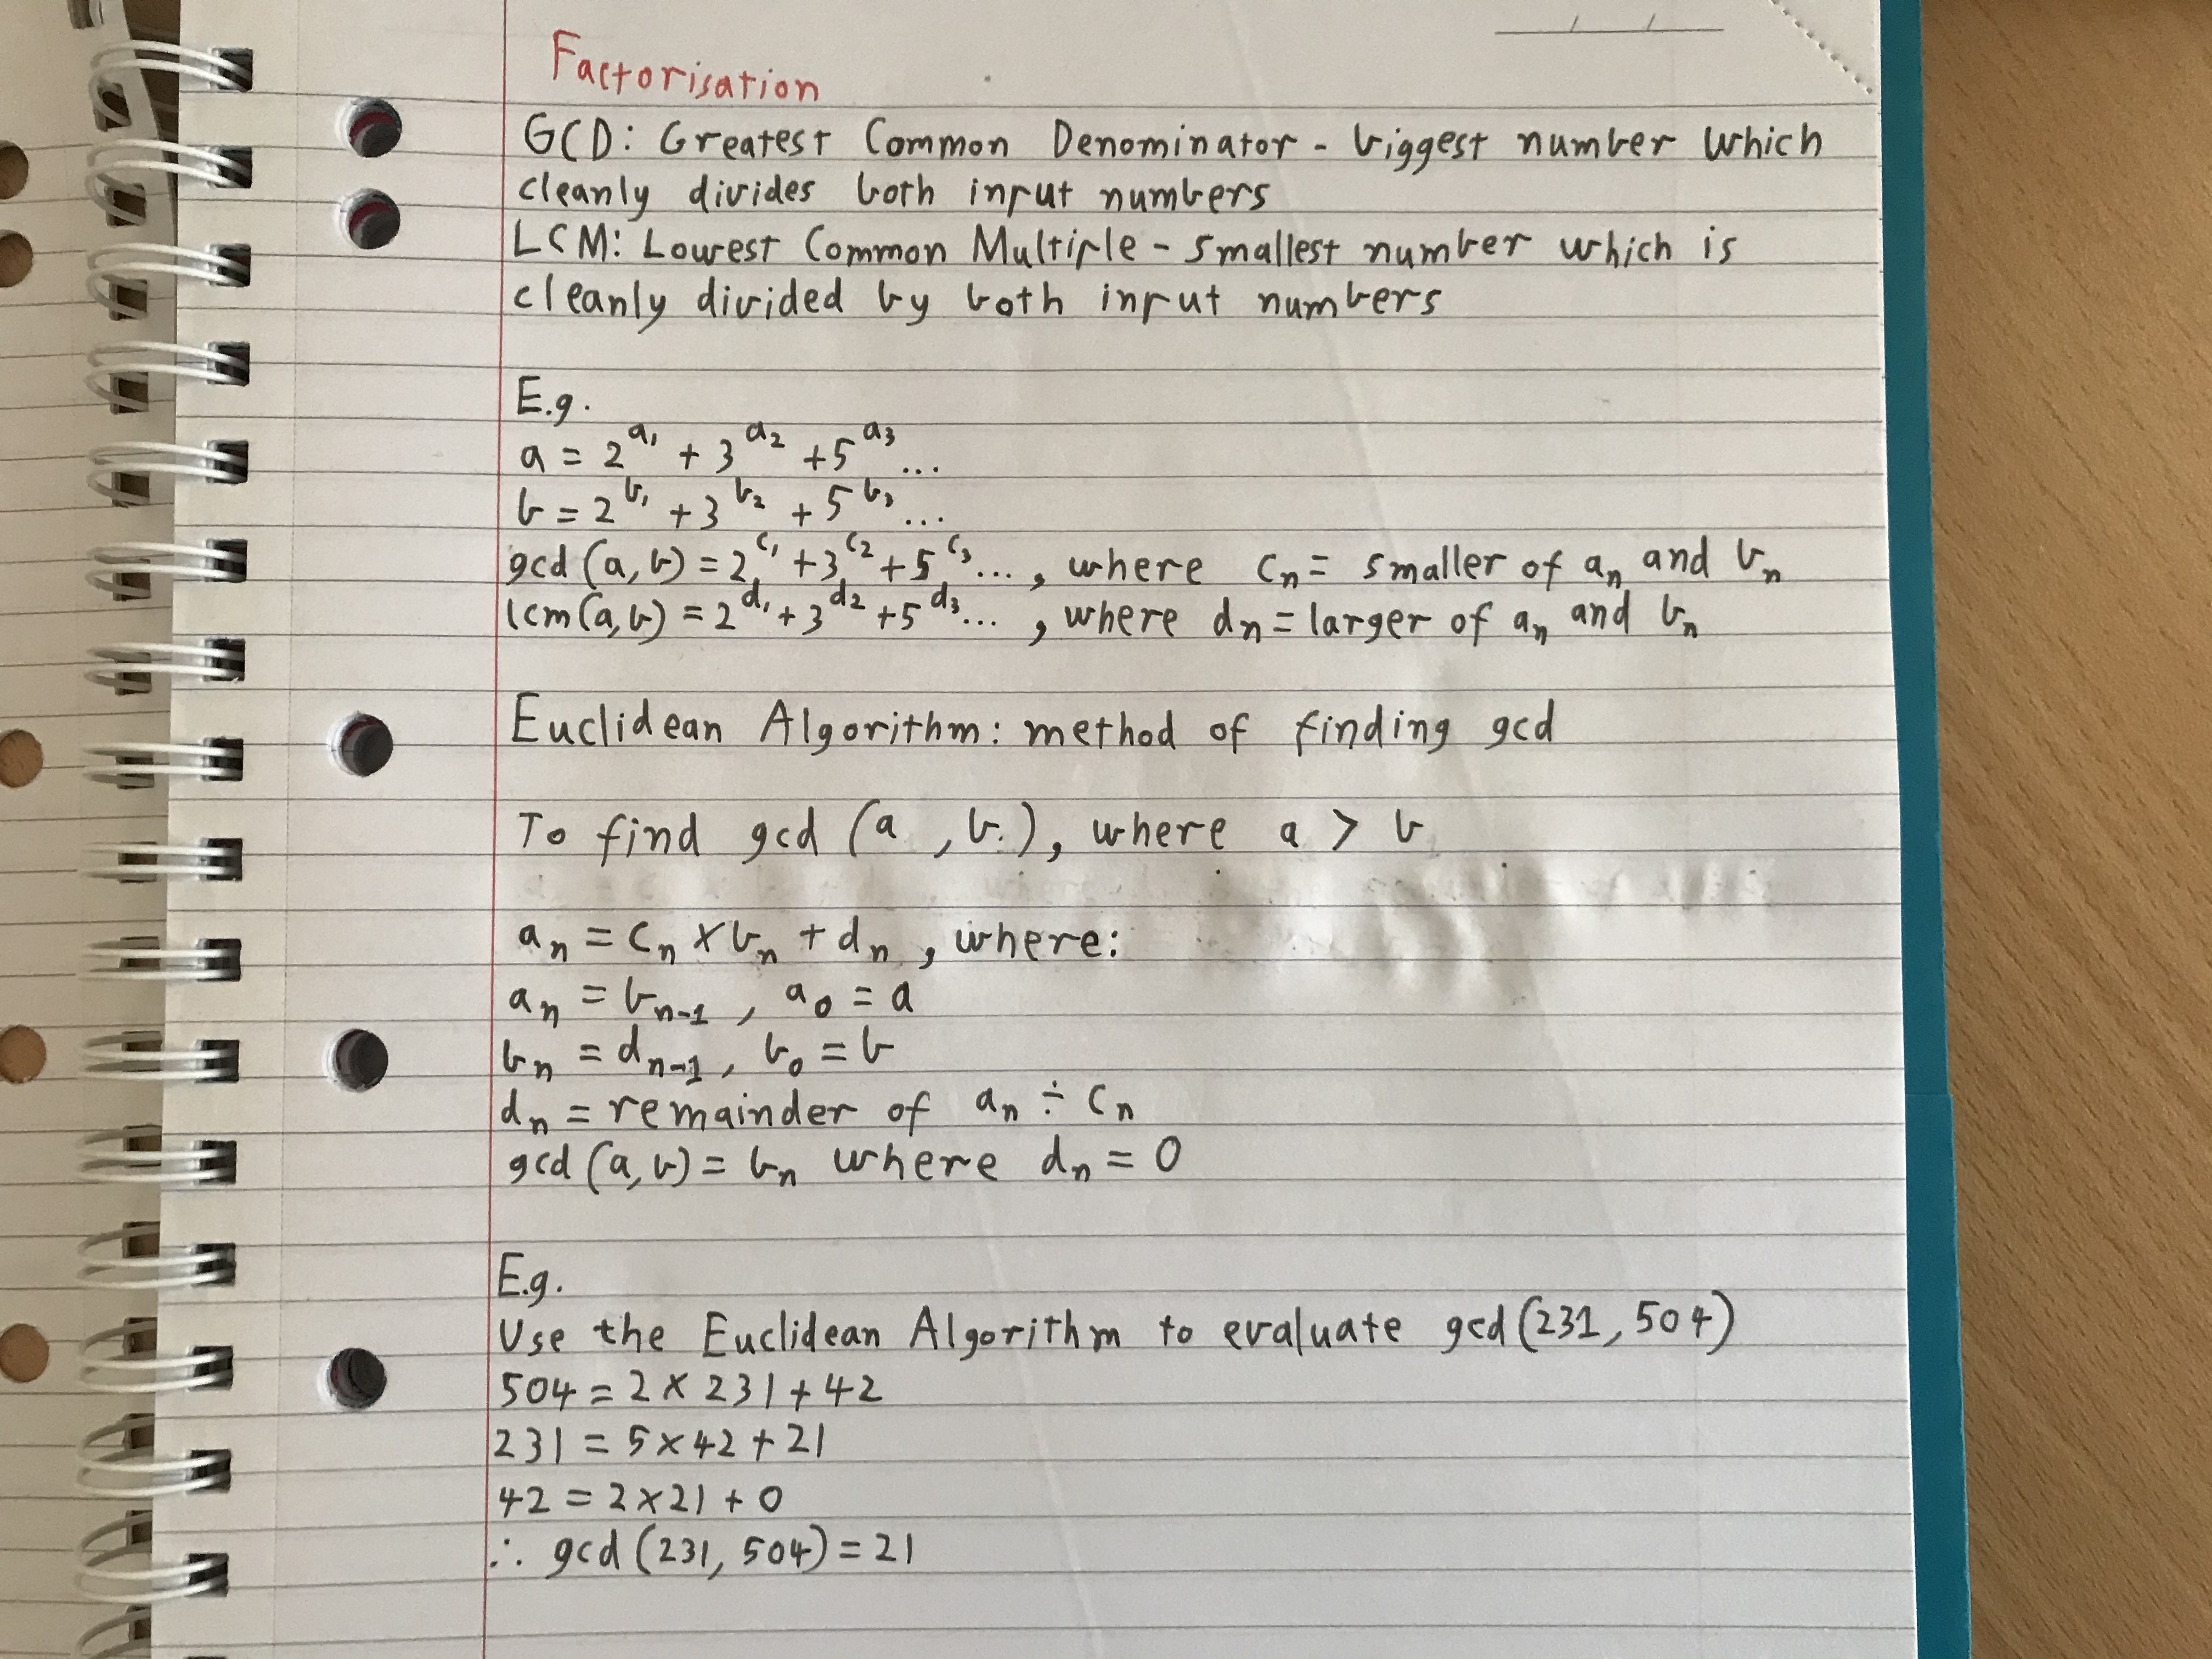 Factorisation
GCD: Greatest Common Denominator - biggest number which
cleanly divides both input numbers
LCM: Lowest Common Multiple - smallest number which is
cleanly divided by both input numbers
E.g.
a = 2^a₁ + 3^a₂ + 5^a₃ ...
b = 2^b₁ + 3^b₂ + 5^b₃ ...
gcd (a, b) = 2^c₁ + 3^c₂ + 5^c₃ ... , where cₙ = smaller of aₙ and bₙ
lcm (a, b) = 2^d₁ + 3^d₂ + 5^d₃ ... , where dₙ = larger of aₙ and bₙ
Euclidean Algorithm: method of finding gcd
To find gcd (a , b), where a > b
aₙ = cₙ × bₙ + dₙ , where:
aₙ = bₙ₋₁ , a₀ = a
bₙ = dₙ₋₁ , b₀ = b
dₙ = remainder of aₙ ÷ cₙ
gcd (a, b) = bₙ where dₙ = 0
E.g.
Use the Euclidean Algorithm to evaluate gcd (231, 504)
504 = 2 × 231 + 42
231 = 5 × 42 + 21
42 = 2 × 21 + 0
∴ gcd (231, 504) = 21